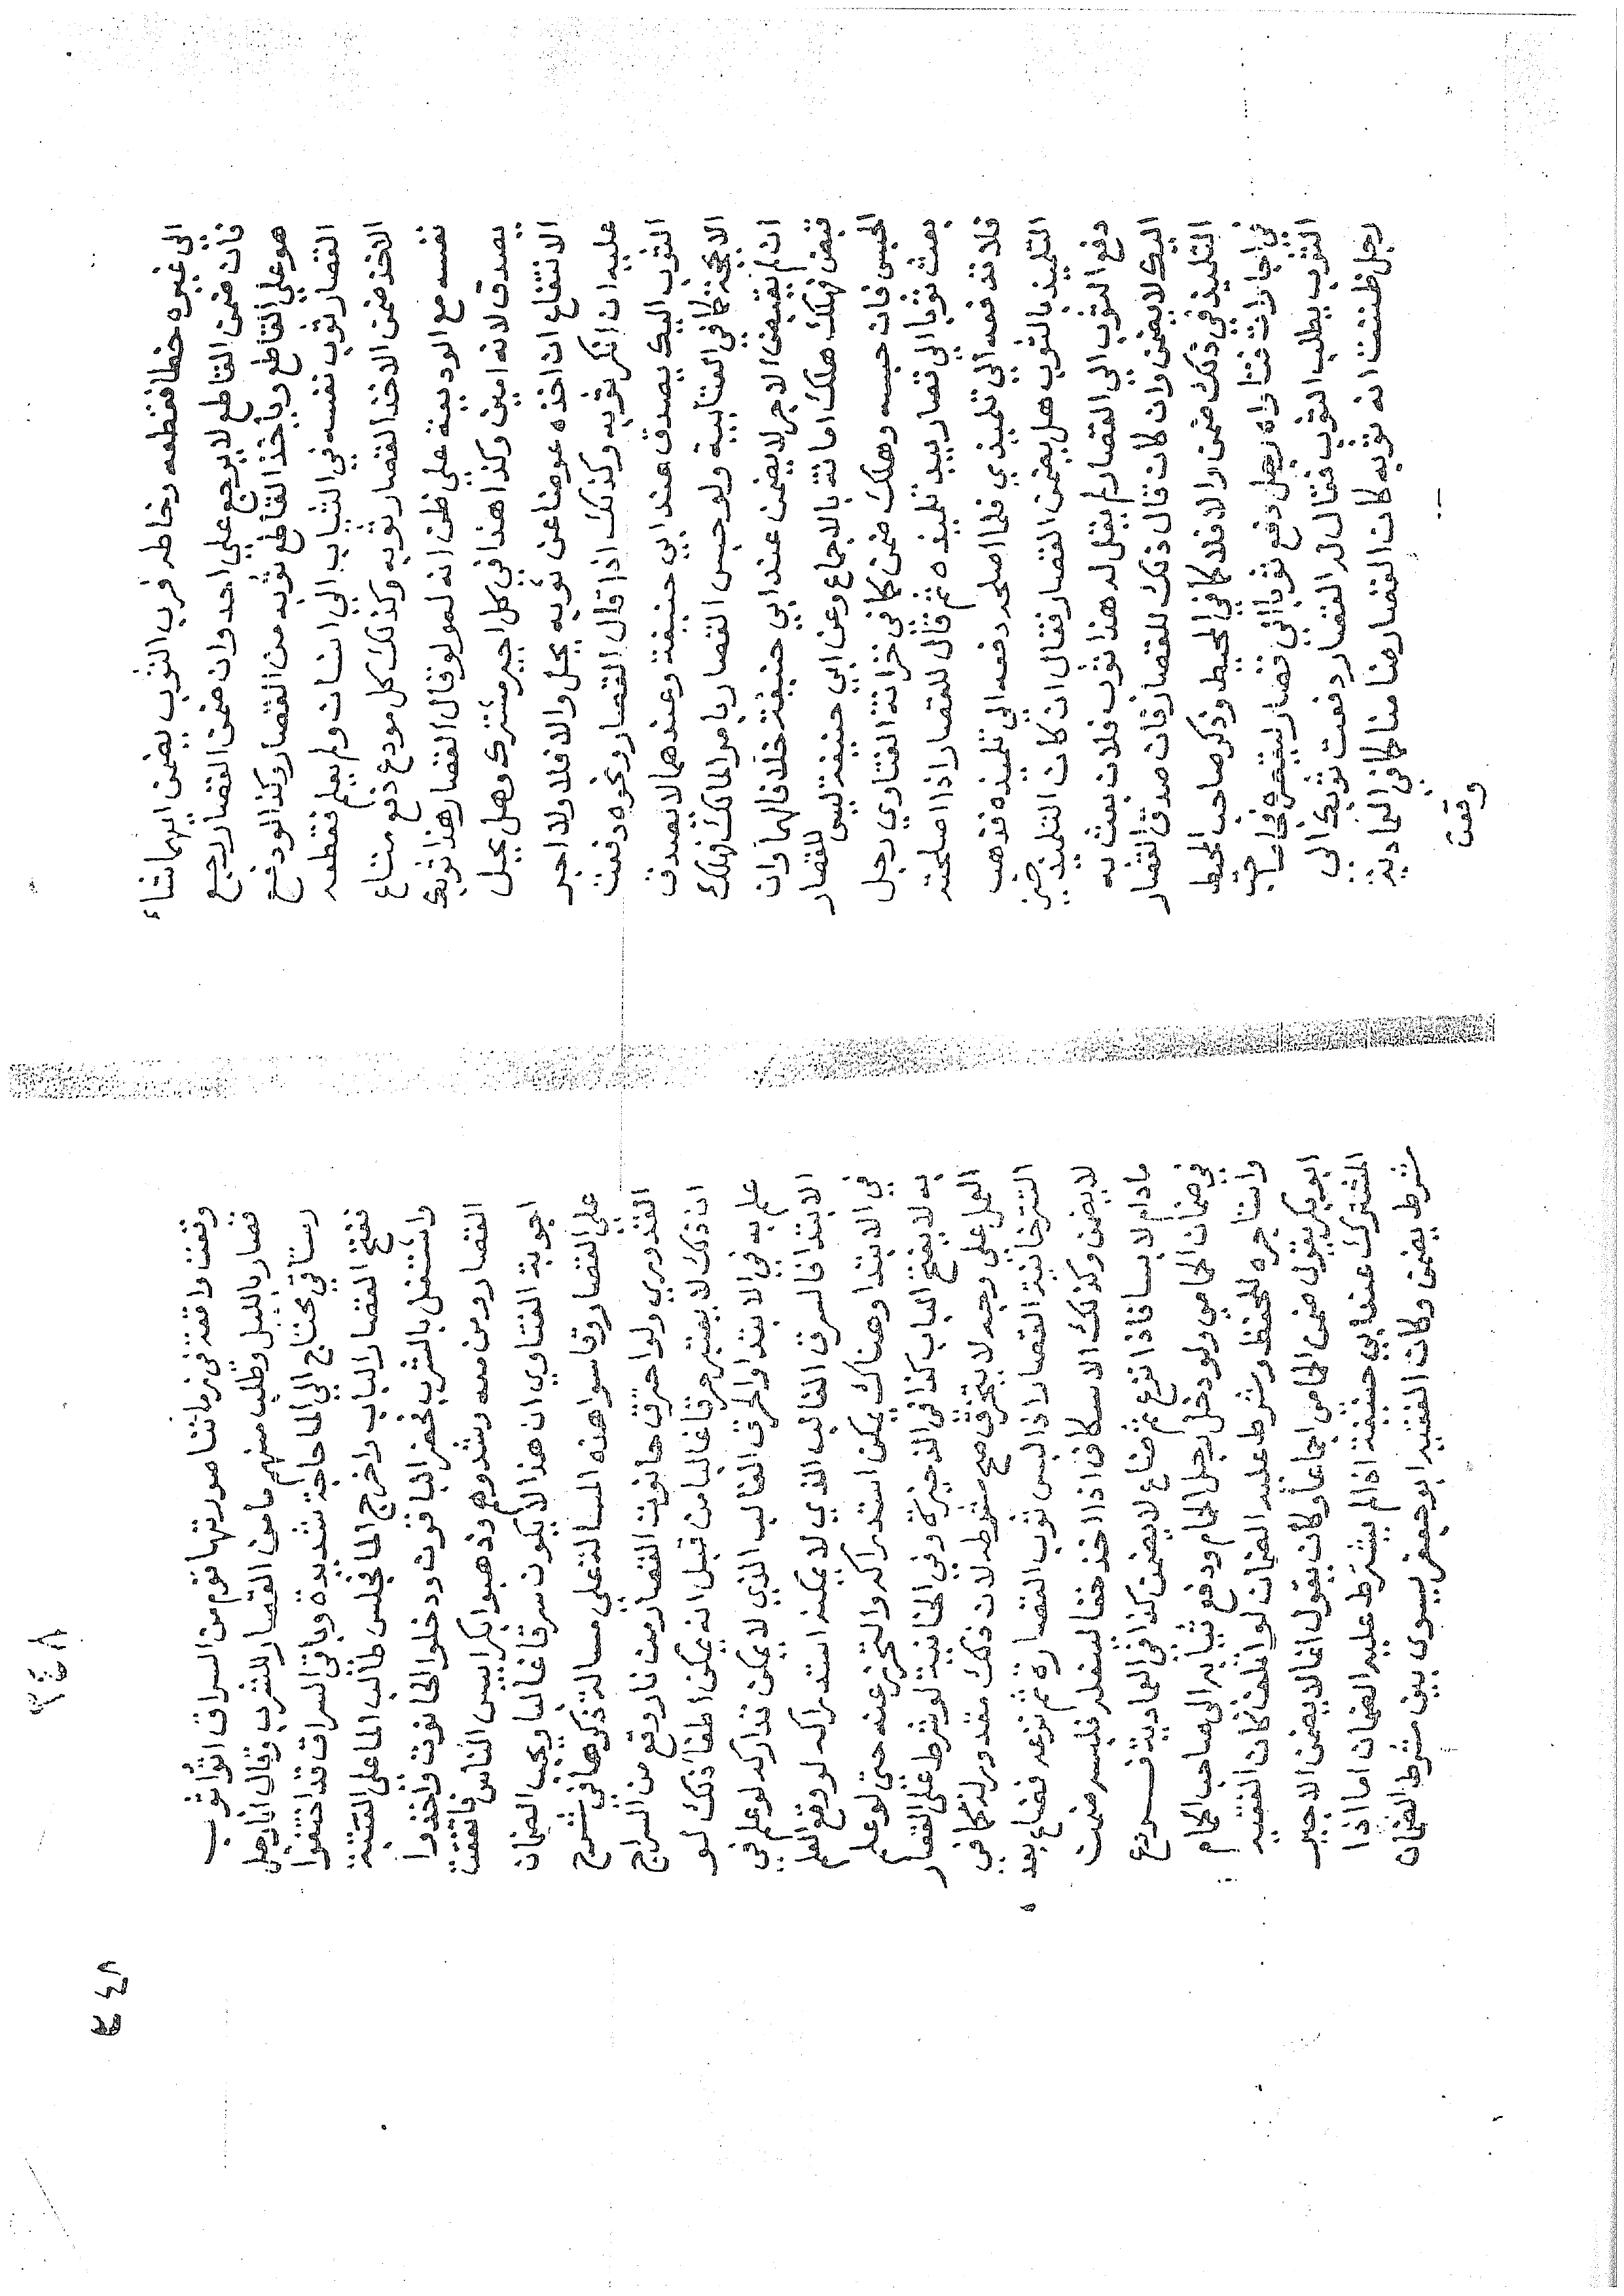 الى غيره خطا فقطعه وخاطر فرب الثوب يضمن ايهما شاء
فان ضمن القاطع لا يرجع على احد وان ضمن القصار رجع
هو على القاطع وياخذ القاطع ثوبه من القصار وكذا لو دفع
القصار ثوب نفسه في الثياب الي انسان ولم يعلم فقطعه
الاخذ ضمن الاخذ القصار ثوبه وكذلك كل مودع دفع متاع
نفسه مع الوديعة على ظن انه لمولو قال القصار هذا ثوبك
يصدق لانه امين وكذا هذا في كل اجير مشترك وهل يحل
الانتفاع ان اخذه عوضا عن ثوبه يحل والا فلا ولا اجر
عليه ان انكر ثوبه وكذلك اذا قال القصار ونحوه دفعت
الثوب اليك يصدق عند ابي حنيفة وعندهما لا يصدق
الا بحجة كما في العتابية ولو حبس القصار بامر المالك فهلك
ان لم يقبض الاجر لا يضمن عند ابي حنيفة خلافا لهما وان
قبض فهلك هلك امانة بالاجماع وعن ابي حنيفة ليس للقصار
الحبس فان حبسه وهلك ضمن كما في خزانة الفتاوي رجل
بعث ثوبا الي قصار بيد تلميذه ثم قال للقصار اذا اصلحته
فلا تدفعه الي تلميذي فلما اصلحه دفعه الي تلميذه فذهب
التلميذ بالثوب هل يضمن القصار فقال ان كان التلميذ حين
دفع الثوب الي القصار لم يقل له هذا ثوب فلان بعث به
اليك لا يضمن وان كان قال ذلك للقصار فان صدق القصار
التلميذ في ذلك ضمن والا فلا كما في المحيط وذكر صاحب المحيط
في اجارات فتاواه رجل دفع ثوبا الي قصار ليقصره فجا صاحب
الثوب يطلب الثوب فقال له القصار دفعت ثوبك الي
رجل ظننت انه ثوبه كان القصار ضامنا كما في العمادية
وقعت
٣٤٨
٤٤٨
وقعت واقعة في زماننا صورتها قوم من السراق اتوا ثوب
قصار بالليل وطلب منهم ماء من القصار للشرب وقال انا رجل
رستاقي محتاج الي الما حاجة شديدة وباقي السراق قد اختفوا
ففتح القصار الباب واخرج الما فجلس طالب الما علي العتبة
واشتغل بالشرب فحضر الباقون ودخلوا الحانوت واخذوا
القصار ومن معه وشدوهم وذهبوا بكرابيس الناس فاتفقت
اجوبة الفتاوي ان هذا لا يكون سرقا غالبا ويجب الضمان
على القصار وقاسوا هذه المسالة على مسالة ذكرها في شرح
القدوري ولو احترق حانوت القصار من نار وقع من السراج
ان ذلك لا يعتبر حرقا غالبا من قبل انه يمكن اطفا ذلك لو
علم به في الابتدا والحرق الغالب الذي لا يمكن تداركه لو علم في
الابتدا فالسرق الغالب الذي لا يمكنه استدراكه لو وقع العلم
في الابتدا وهناك يمكن استدراكه والتحرز عنه حتى لو علم
به لا يفتح الباب كذا في الذخيرة وفي الخانية لو شرط على القصار
العمل على وجه لا يتخرق صح شرطه لان ذلك مقدور له كما في
التترخانية القصار اذا لبس ثوب القصارة ثم نزعه فضاع بعده
لا يضمن وكذلك الاسكاف اذا اخذ خفا لينعله فلبسه ضمن
مادام لابسا فاذا انزع ثم ضاع لا يضمن كذا في العمادية فـــرع
في ضمان الحامي ولو دخل رجل الحام ودفع ثيابه الى صاحب الحام
واستاجره للحفظ وشرط عليه الضمان لو اتلف كان الفقيه
ابو بكر يقول ضمن الحامي اجماعا وكان يقول انما لا يضمن الاجير
المشترك عند ابي حنيفة اذا لم يشترط عليه الضمان اما اذا
شرط يضمن وكان الفقيه ابو جعفر يسوى بين شرط الضمان